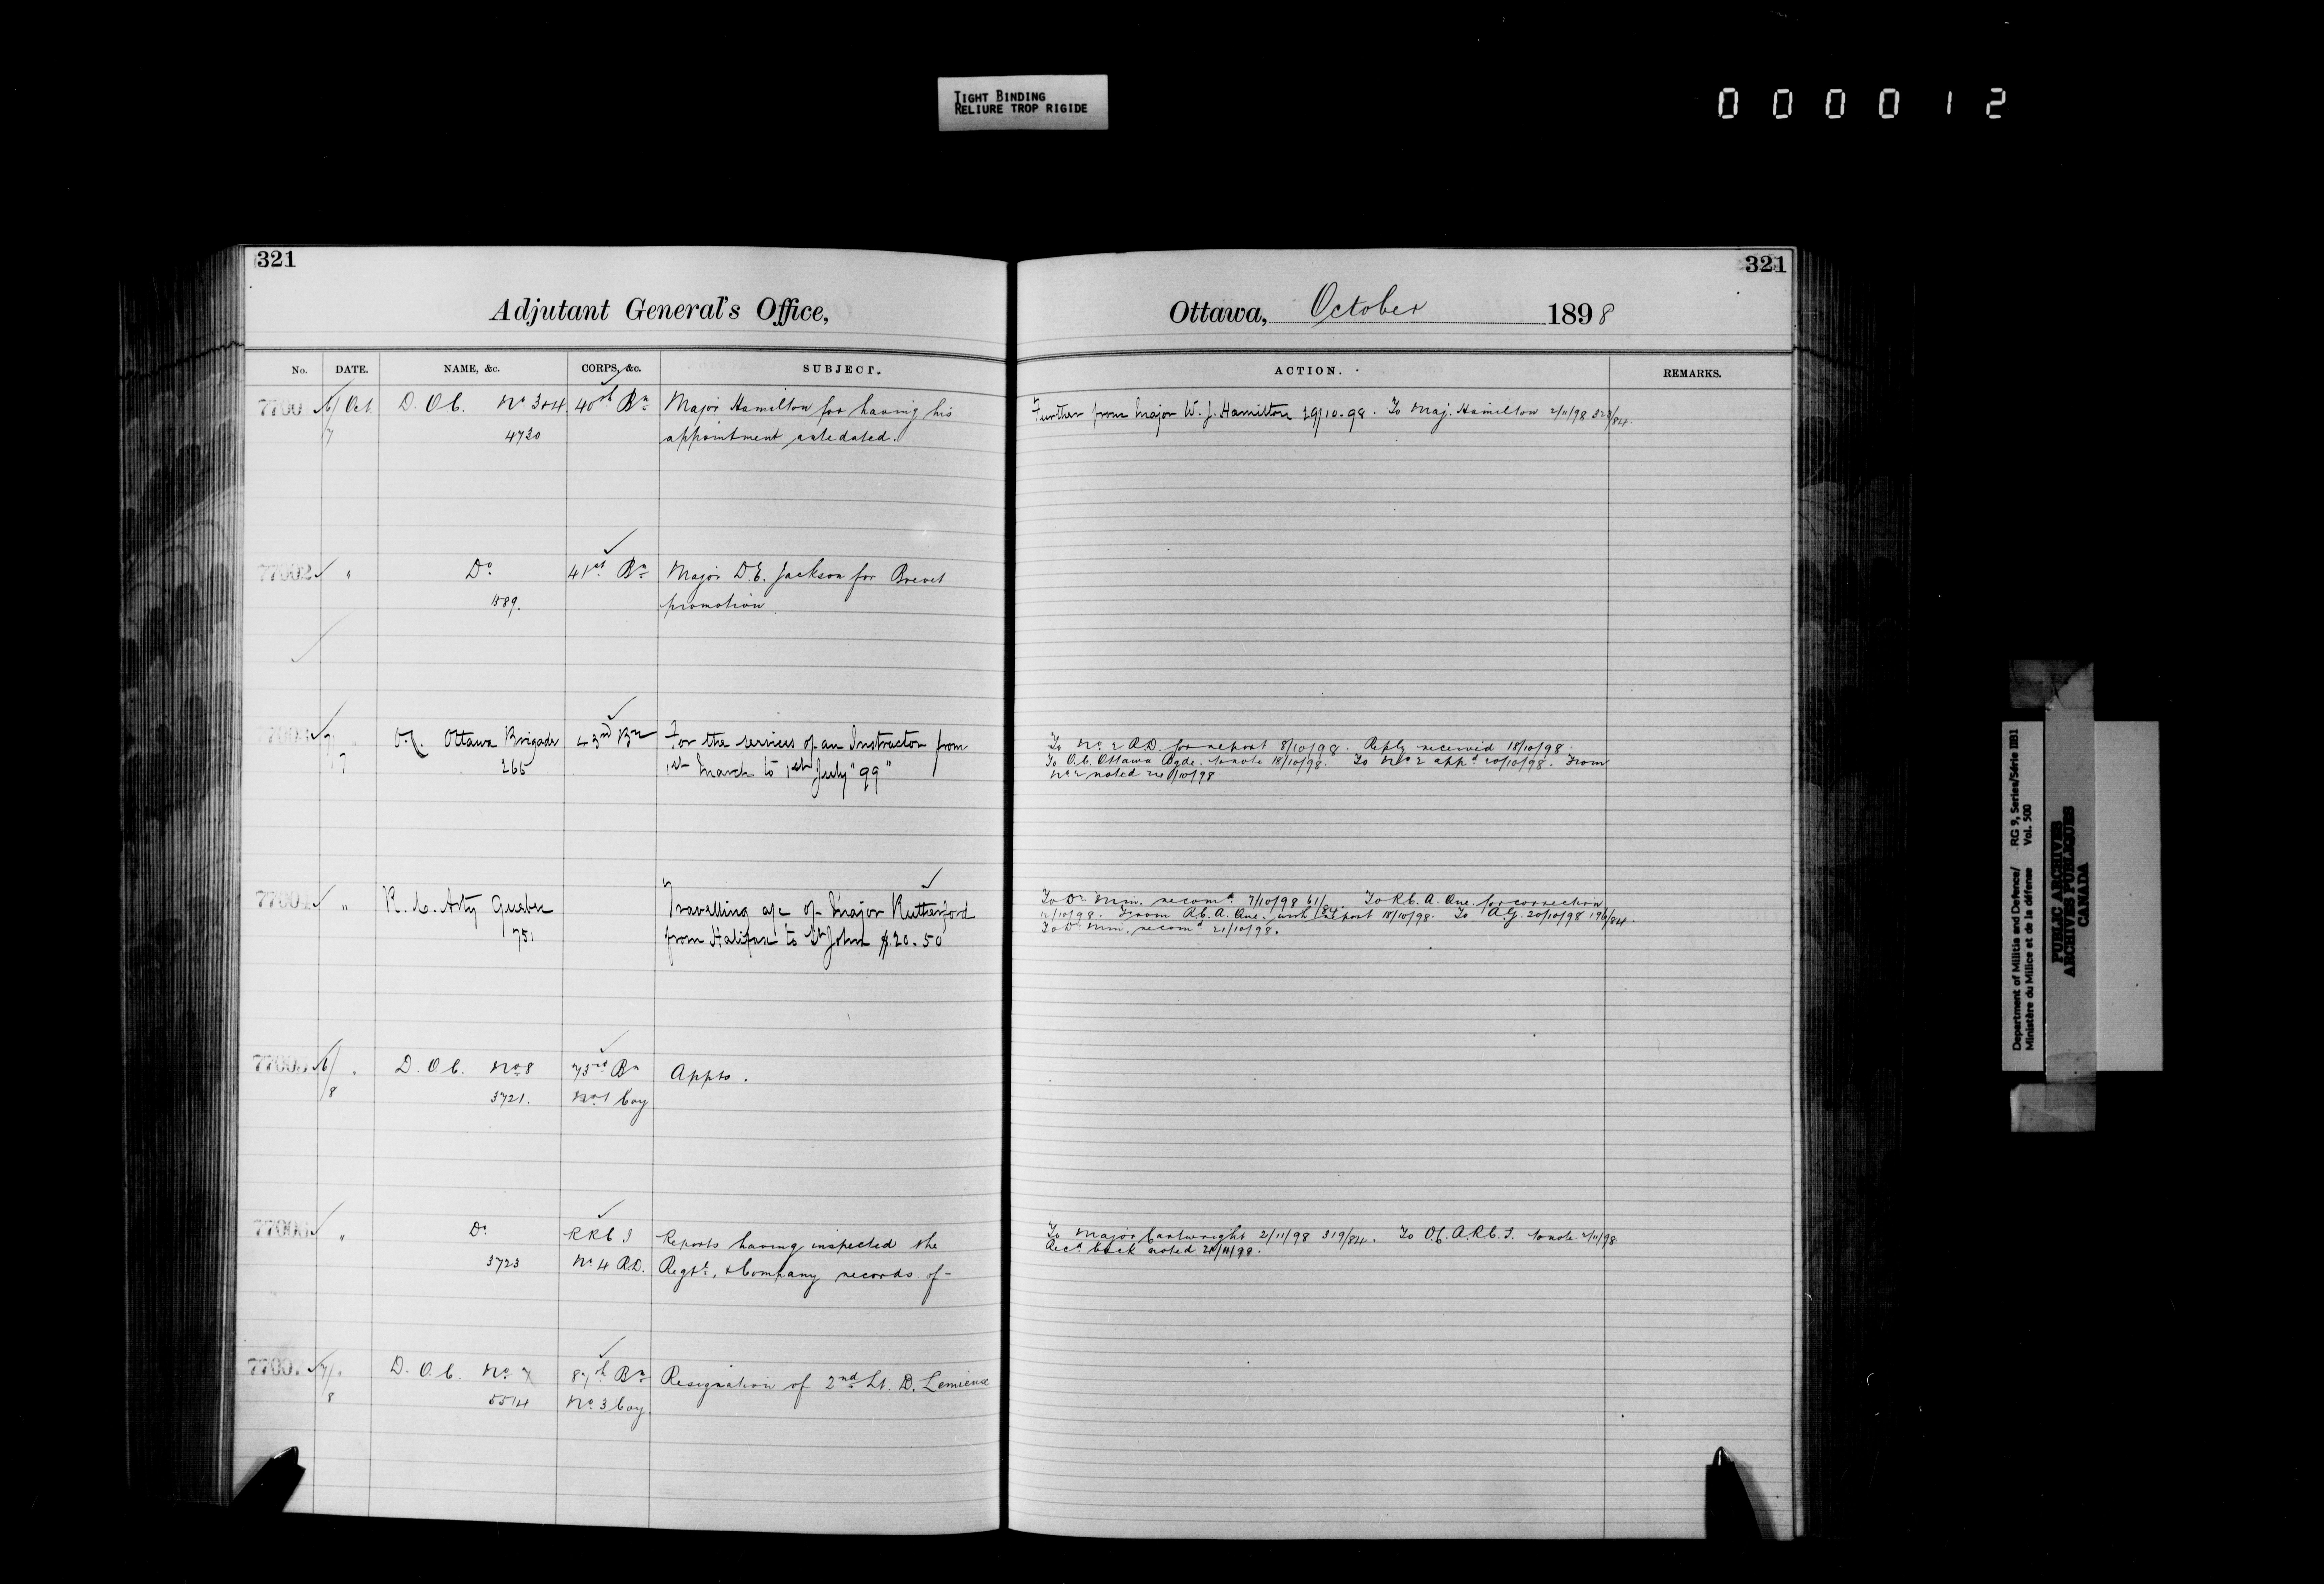 TIGHT BINDING
RELIURE TROP RIGIDE
000012
321
Adjutant General's Office,
No. DATE. NAME, &c. CORPS, &c. SUBJECT.
7700 6/ Oct. D.O.C. No 3&4 40th Bn Major Hamilton for having his
7 4730 appointment antedated.
77002 " Do 41st Bn Major D.E. Jackson for Brevet
1589. promotion.
7700 7/ " O.C. Ottawa Brigade 43rd Bn For the services of an Instructor from
7 265 1st March to 1st July "99"
77004 " R.C. Arty Quebec Travelling a/c of Major Rutherford
751 from Halifax to St John $20.50
77005 6/ " D.O.C. No 8 73rd Bn Appts.
8 3721. No 1 Coy
77006 " Do R.R.C.I Reports having inspected the
3723 No 4 R.D. Regtl. & Company records of-
77007 7/ " D.O.C. No 7 87th Bn Resignation of 2nd Lt. D. Lemieux
8 5514 No 3 Coy.
321
Ottawa, October 1898
ACTION. REMARKS.
Further from Major W. J. Hamilton 29/10.98. To Maj. Hamilton 2/11/98 323/84.
To No 2 R.D. for report 8/10/98. Reply received 18/10/98.
To O.C. Ottawa Bgde. to note 18/10/98. To No 2 appd 20/10/98. From
No 2 noted /10/98
To Dr. Min. recomd 7/10/98 61/84. To R.C.A. Que. for correction
12/10/98. From R.C.A. Que. with report 18/10/98. To A.G. 20/10/98 196/84.
To D. Min. recomd 21/10/98.
To Major Cartwright 2/11/98 319/84. To O.C. R.R.C.I. to note 2/11/98
Recd back noted /11/98.
Department of Militia and Defence/ RG 9, Series/Série IIB1
Ministère du Milice et de la défense Vol. 500
PUBLIC ARCHIVES
ARCHIVES PUBLIQUES
CANADA